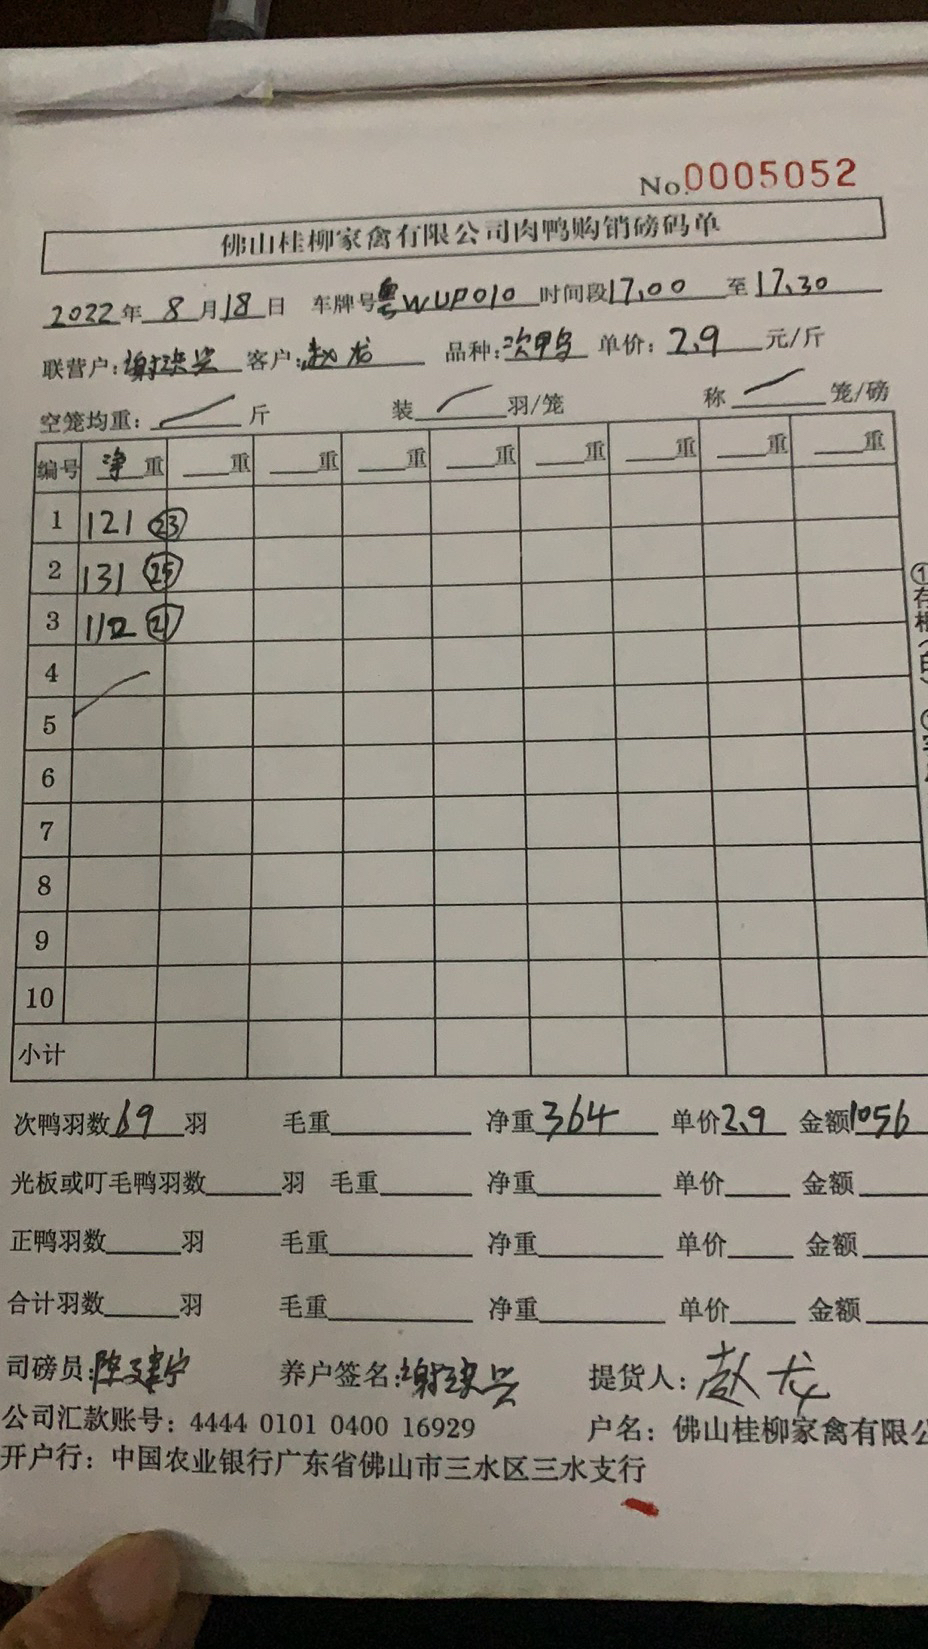 No.0005052
佛山桂柳家禽有限公司肉鸭购销磅码单
2022年 8月18日 车牌号粤WUP010 时间段17.00 至17.30
联营户:谢 兴 客户:赵龙 品种:次鸭 单价:2.9 元/斤
空笼均重: 斤 装 羽/笼 称 笼/磅
编号 净重 重 重 重 重 重 重 重 重
1 121 23
2 131 25
3 112 21
4
5
6
7
8
9
10
小计
次鸭羽数69羽 毛重 净重364 单价2.9 金额1056
光板或叮毛鸭羽数 羽 毛重 净重 单价 金额
正鸭羽数 羽 毛重 净重 单价 金额
合计羽数 羽 毛重 净重 单价 金额
司磅员:陈建宁 养户签名:谢 兴 提货人:赵龙
公司汇款账号: 4444 0101 0400 16929 户名: 佛山桂柳家禽有限公
开户行: 中国农业银行广东省佛山市三水区三水支行
①存根(白)